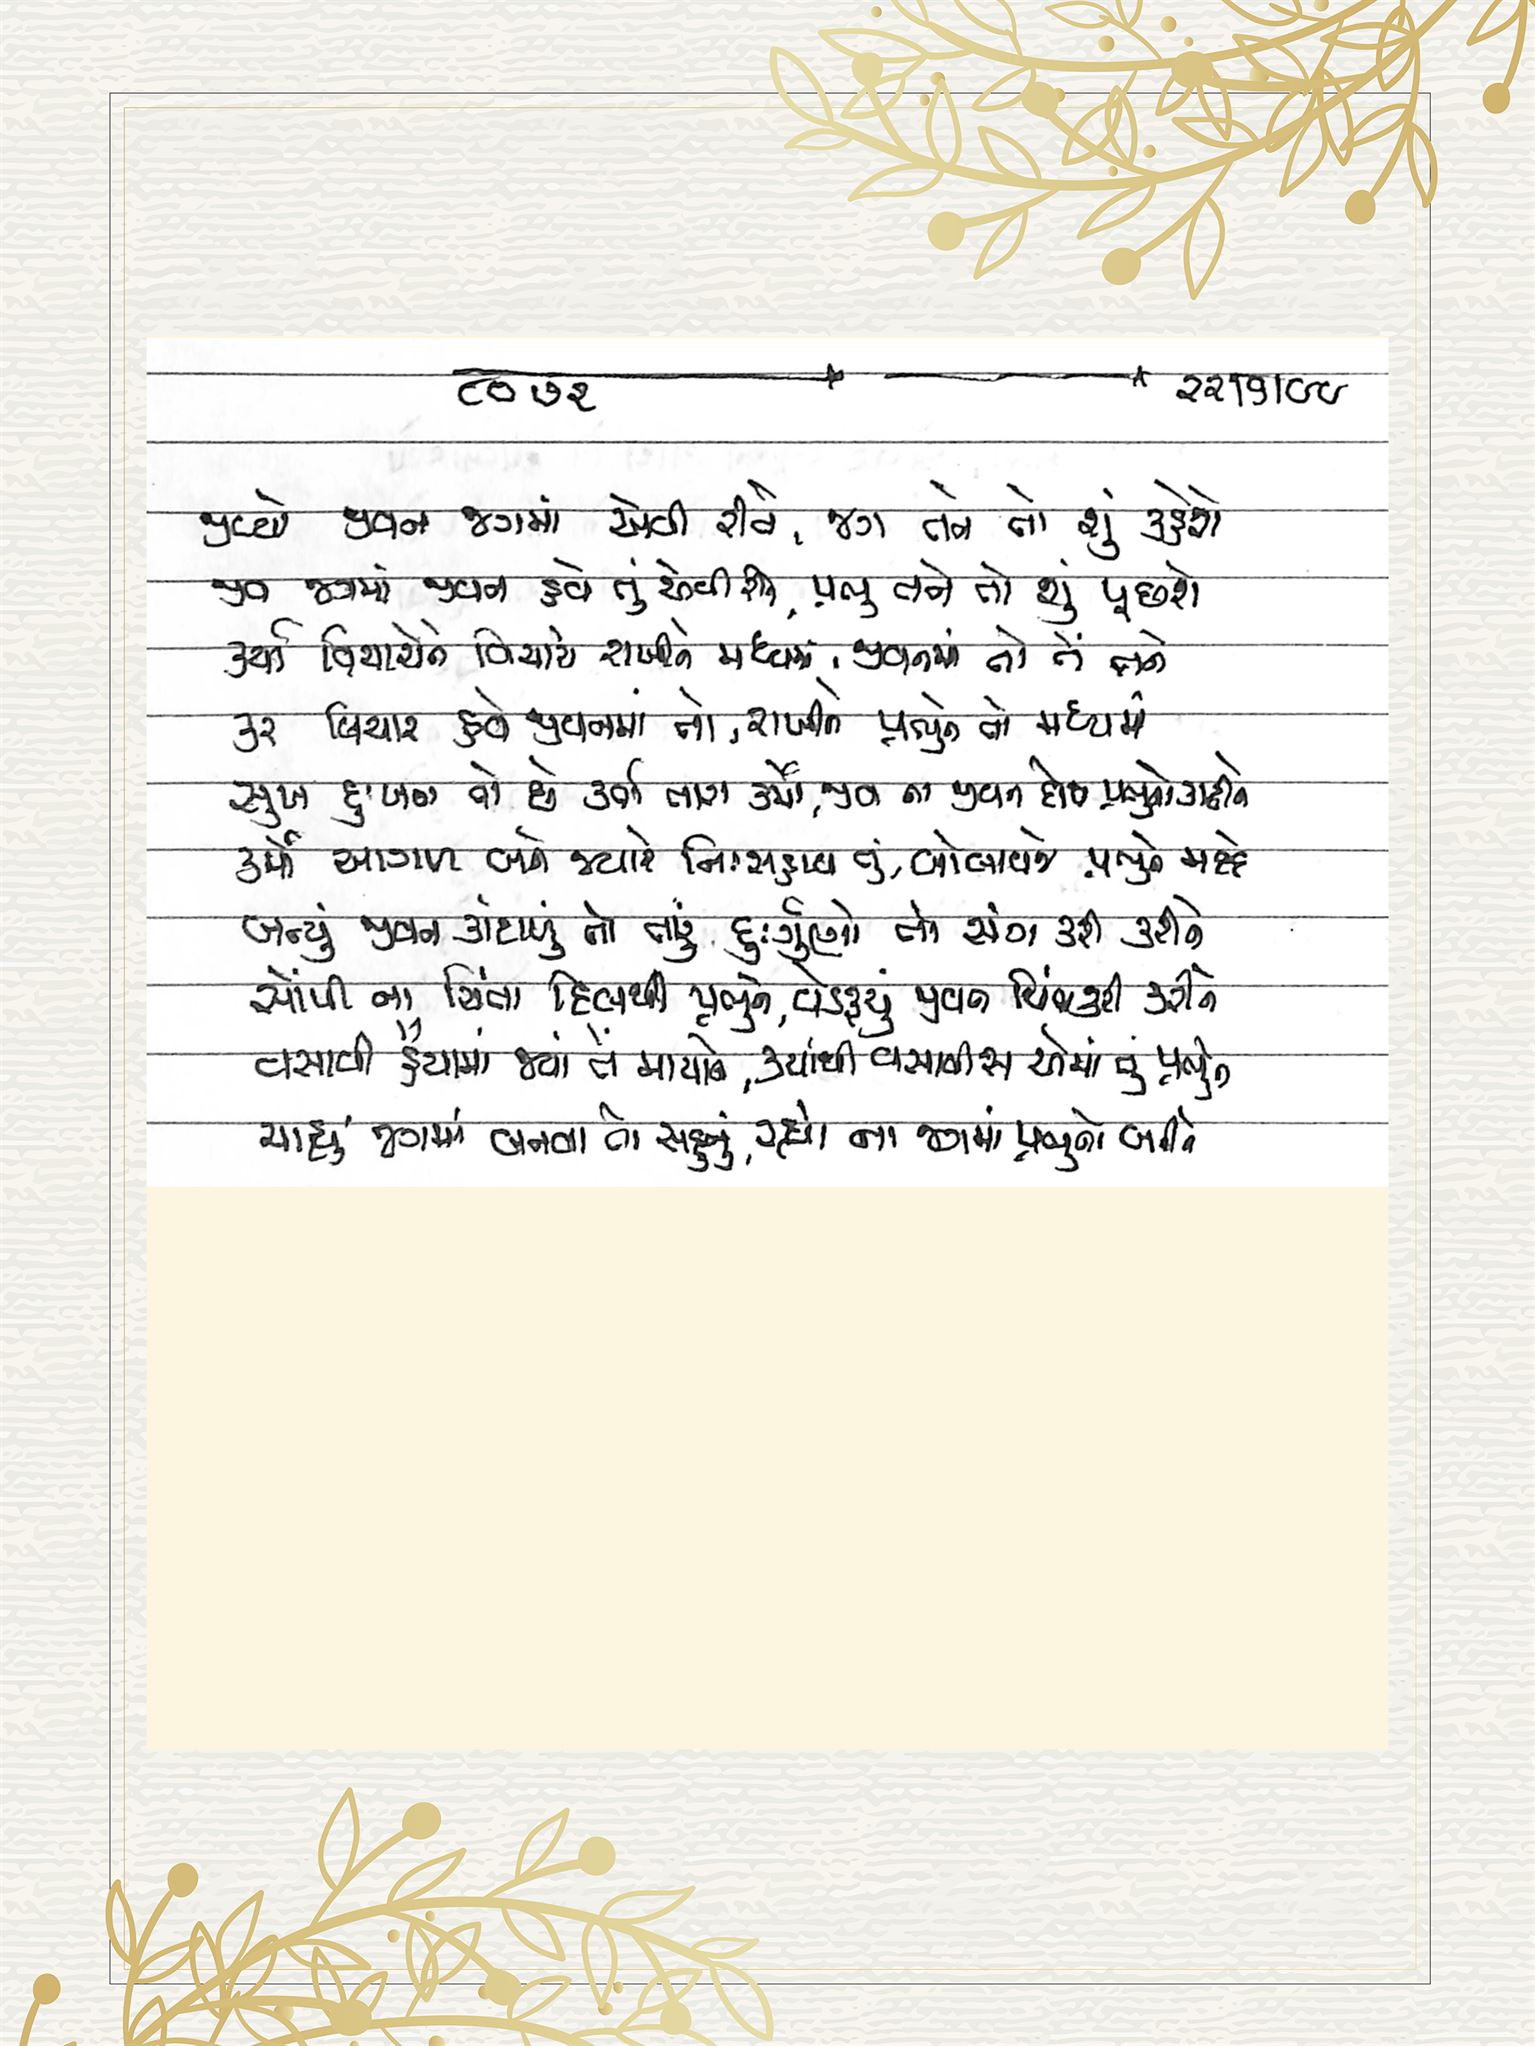 ૮૦૭૨ ૨૨।૧।૯૯
જીવ્યો જીવન જગમાં એવી રીતે, જગ તને તો શું કહેશે
જીવ જગમાં જીવન હવે તું એવી રીતે, પ્રભુ તને તો શું પૂછશે
કર્યા વિચારોને વિચારો રાખીને મધ્યમાં, જીવનમાં તો તેં તને
કર વિચાર હવે જીવનમાં તો, રાખીને પ્રભુને તો મધ્યમાં
સુખ દુઃખનો તો છે કર્તા તારા કર્મો, જીવ ના જીવન દોષ પ્રભુનો કાઢીને
કર્મો આગળ બને જ્યારે નિઃસહાય તું, બોલાવજે પ્રભુને મદદે
બન્યું જીવન કાંટાળું તો તારું દુઃર્ગુણો નો સંગ કરી કરીને
સોંપી ના ચિંતા દિલથી પ્રભુને, વેડફયું જીવન ચિંતા કરી કરીને
વસાવી હૈયામાં જ્યાં તેં માયાને, ક્યાંથી વસાવીશ એમાં તું પ્રભુને
ચાહ્યું જગમાં બનવા તો સહુનું, રહ્યો ના જગમાં પ્રભુનો બનીને